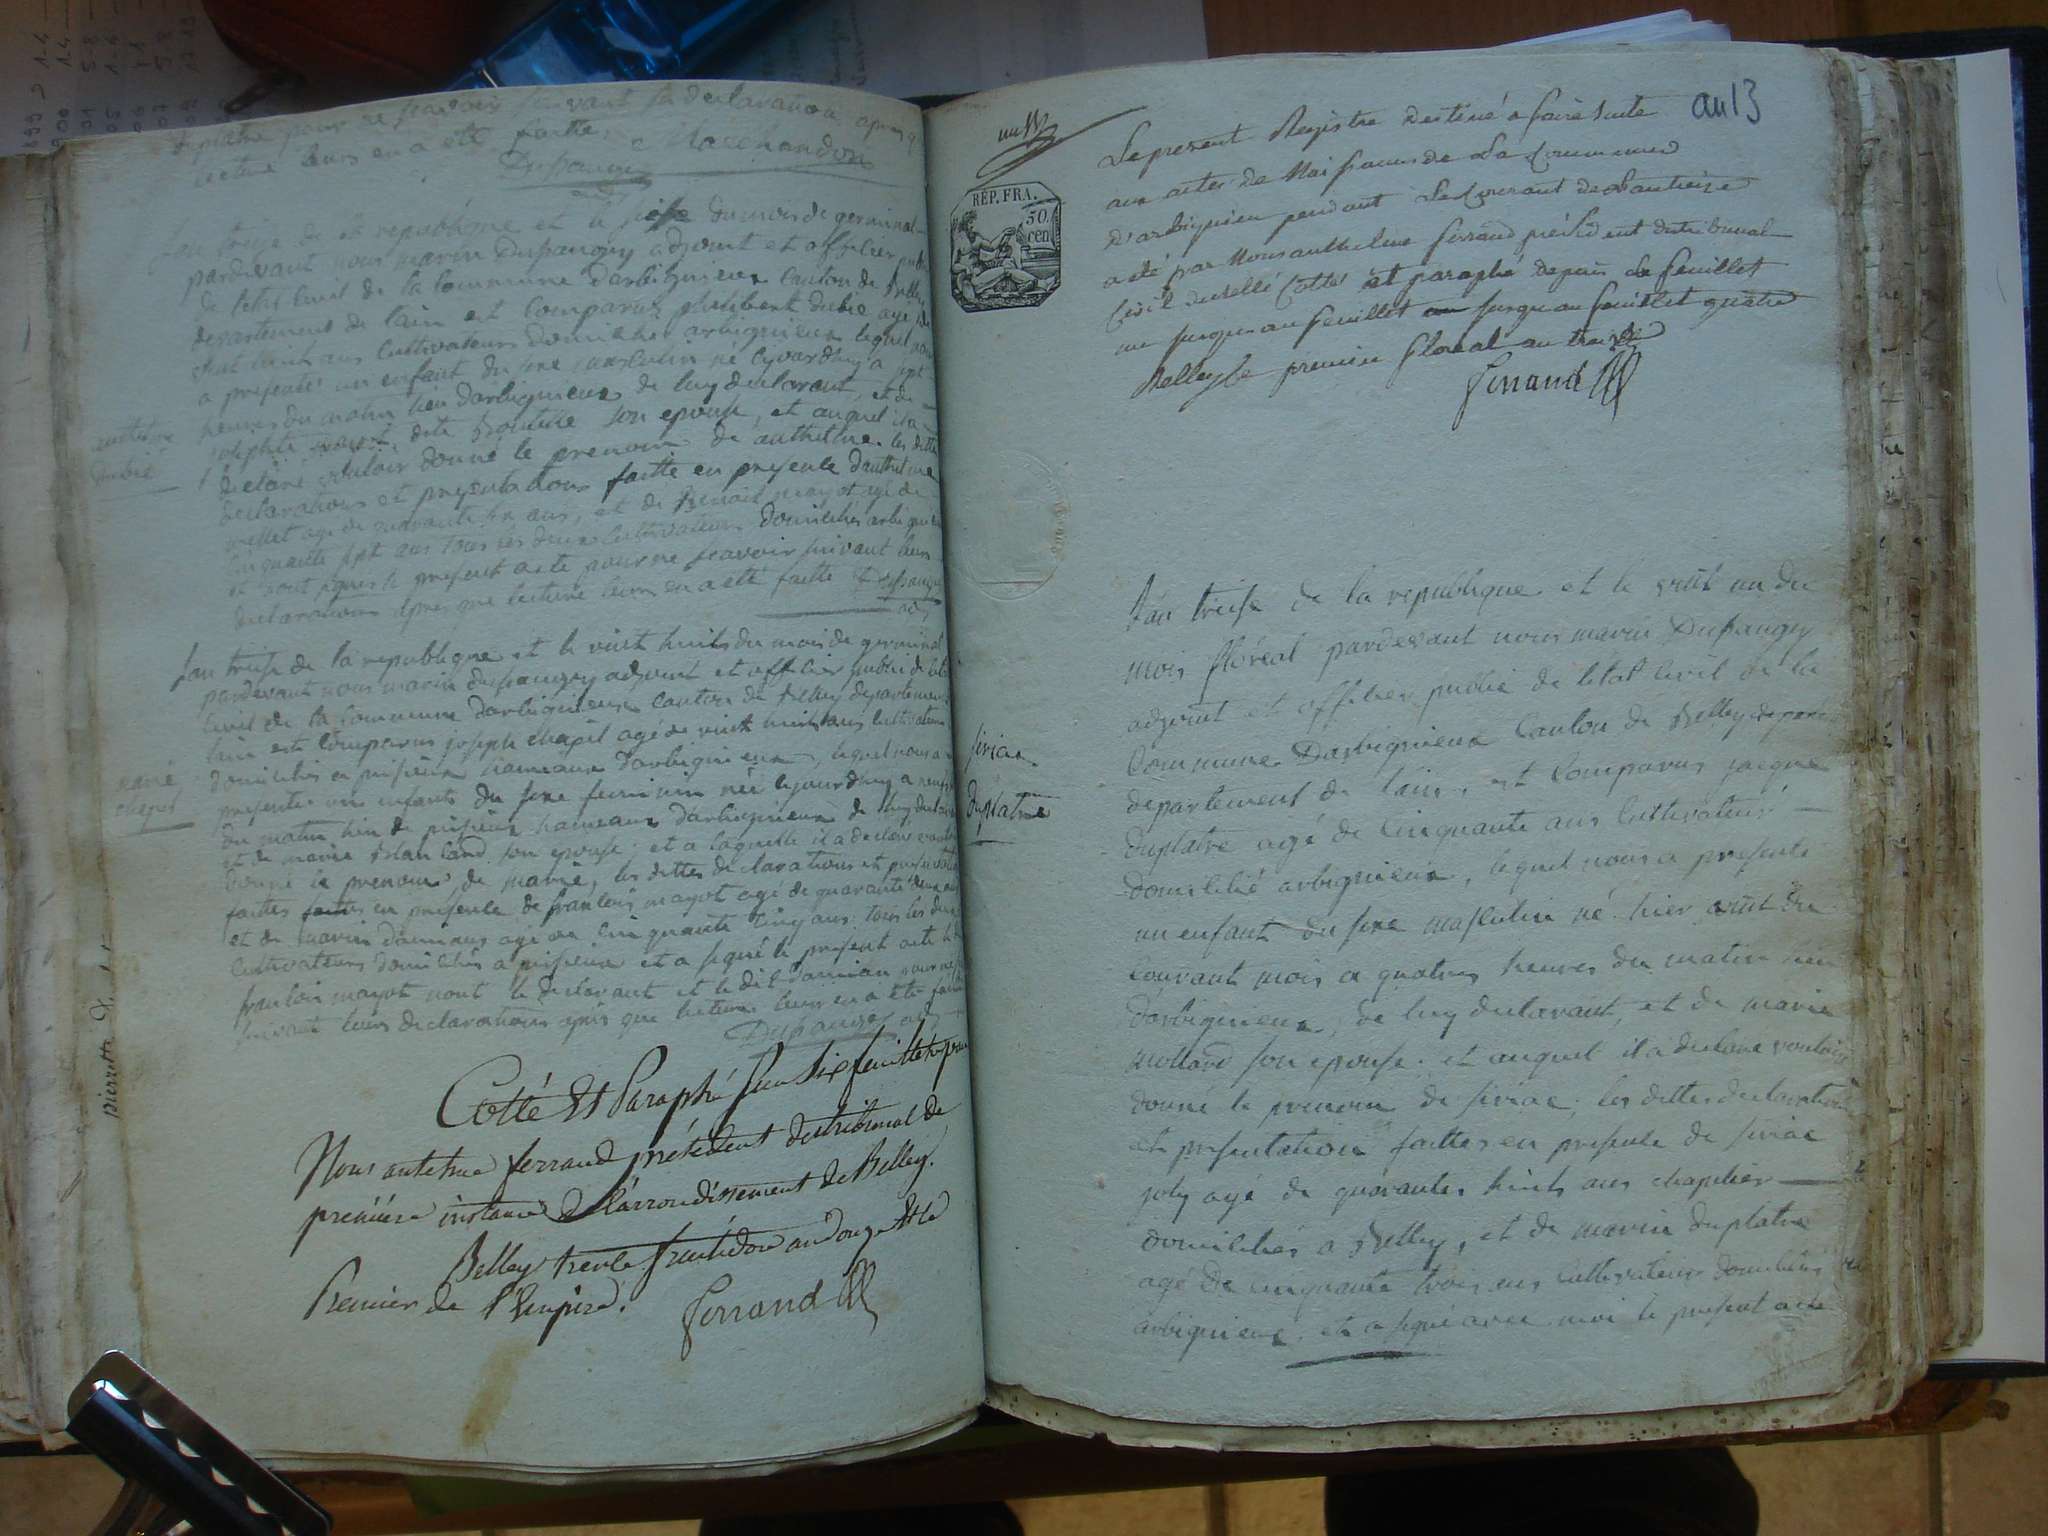 duplatre pour ne scavoir suivant sa declaration apres q
lecture leurs en a eté faitte
Dupraugey Marchandon
Lan treise de la republique et le seise du mois de germinal
pardevant nous marin Dupraugey adjoint et officier public
de letat Civil de la Commune darbignieux Canton de Belley
departement de lain est Comparus
huit ans Cultivateurs domicilié arbignieux lequel nous
a presenté un enfant du sexe masculin né cejourdhuy a sept
heures du matin lieu darbignieux de luy declarant, et de
josephte son epouse, et auquel il a
declaré vouloir donné le prenom de anthelme. les dittes
declarations et presentations faitte en presence danthelme
agé de quarante six ans, et de Benoit mayot agé de
cinquante sept ans tous les deux Cultivateurs domiciliés arbignieux
et nont signés le present acte pour ne scavoir suivant leurs
declarations apres que lecture leurs en a eté faitte Dupraugey
adj
anthelme
dubié
Lan treise de la republique et le vint huit du mois de germinal
pardevant nous marin dupraugey adjoint et officier public de letat
Civil de la Commune darbignieux Canton de Belley departement
lain est Comparus joseph chapel agé de vint huit ans Cultivateur
domiciliés a pisieux hameaux darbignieux, lequel nous a
presentés un enfants du sexe feminin née cejourdhuy a neuf
du matin lieu de pisieux hameaux darbignieux de luy declarant
et de marie son epouse. et a laquelle il a declaré vouloir
donné le prenom de marie, les dittes declarations et presentations
faittes en presence de francois mayot agé de quarante deux ans
et de marin damians agé de cinquante cinq ans. tous les deux
Cultivateurs domiciliés a pisieux et a signé le present acte le
francois mayot nont le declarant et le dit damian pour ne
suivant leurs declarations apres que lecture leurs en a eté faitte
Dupraugey adj
marie
chapel
Cotté Et Paraphé sur six feuillets par
Nous antelme ferrand président du tribunal de
première instance de l'arrondissement de Belley.
Belley trente fructidor an douze Et le
Premier de l'Empire.
ferrand
pierrette d.
an 13
REP. FRA.
50
cen
Le present Registre destiné a faire suite
aux actes de Naissances de La Commune
d'arbignieu pendant Le Courant de L'an treize
a été par Nous anthelme ferrand président du tribunal
Civil de Belley Cotté et paraphé depuis Le feuillet
un jusques au feuillet jusqu au feuillet quatre
Belley le premier floreal an treize
ferrand
Lan treise de la republique et le vint un du
mois floréal pardevant nous marin Dupraugey
adjoint et officier public de letat Civil de la
Commune Darbignieux Canton de Belley
departement de lain, est Comparus jacque
Duplatre agé de Cinquante ans Cultivateur
domicilié arbignieux, lequel nous a presenté
un enfant du sexe masculin né hier vint du
Courant mois a quatres heures du matin lieu
darbignieux, de luy declarant, et de marie
mollard son epouse. et auquel il a declaré vouloir
donné le prenom de siriac, les dittes declarations
et presentation faittes en presence de siriac
joly agé de quarantes huits ans chapelier
domiciliés a Belley, et de marin duplatre
agé de cinquante trois ans Cultivateur domiciliés
arbignieux. et a signé avec moi le present acte
siriac
Duplatre